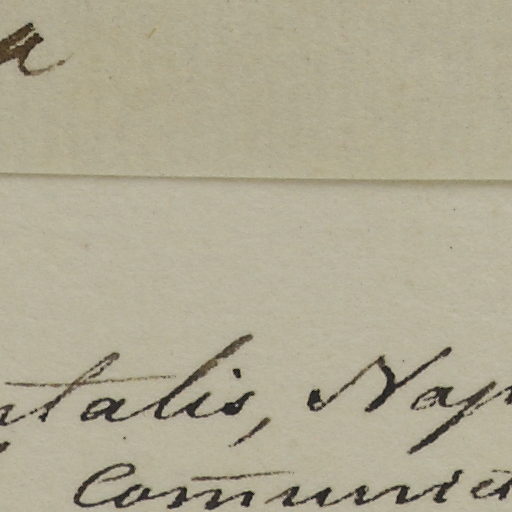 a
ntalis, Nap
Comunic